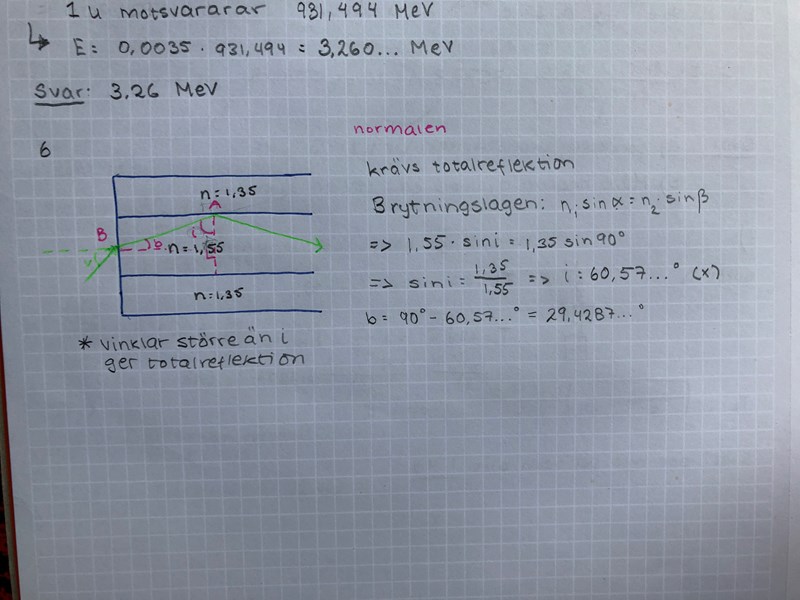 1 u motsvararar 931,494 MeV
↳ E = 0,0035 · 931,494 = 3,260... MeV
Svar: 3,26 MeV
6
normalen
n = 1,35
A
B
i
b
n = 1,55
n = 1,35
* vinklar större än i
ger totalreflektion
krävs totalreflektion
Brytningslagen: n₁ sin α = n₂ · sin β
=> 1,55 · sin i = 1,35 sin 90°
=> sin i = 1,35/1,55 => i = 60,57...° (*)
b = 90° - 60,57...° = 29,4287...°